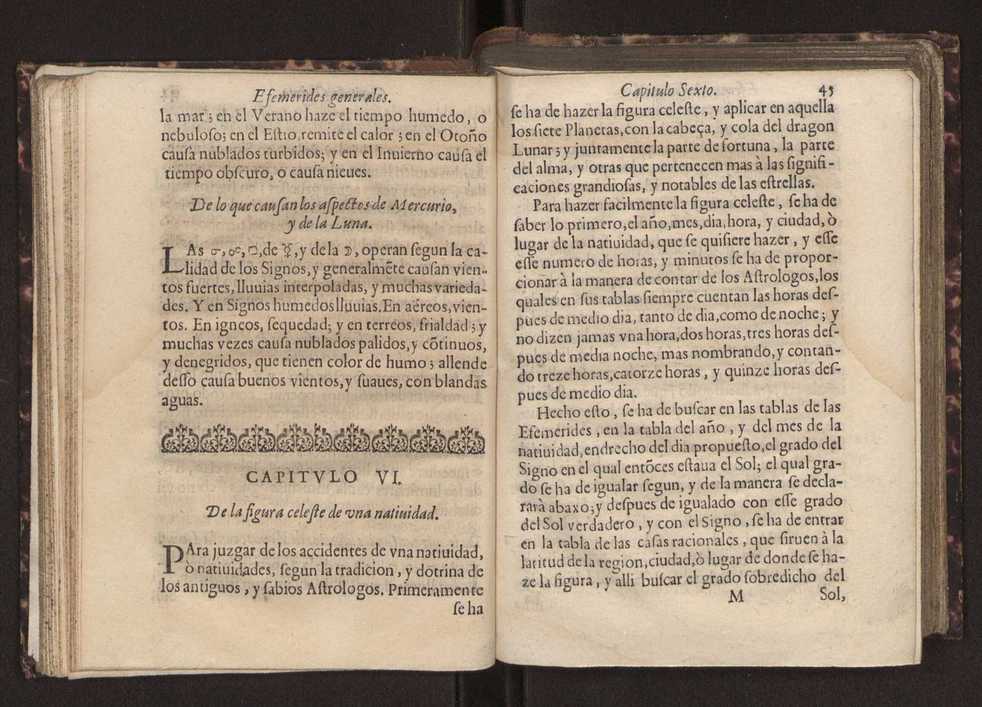 Efemerides generales.
la mar; en el Verano haze el tiempo humedo, o
nebuloso; en el Estio, remite el calor; en el Otoño
causa nublados turbidos; y en el Inuierno causa el
tiempo obscuro, o causa nieues.
De lo que causan los aspectos de Mercurio,
y de la Luna.
LAs ☌, ☍, □, de ☿, y de la ☽, operan segun la ca-
lidad de los Signos, y generalmēte causan vien-
tos fuertes, lluuias interpoladas, y muchas varieda-
des. Y en Signos humedos lluuias. En aëreos, vien-
tos. En igneos, sequedad; y en terreos, frialdad; y
muchas vezes causa nublados palidos, y cōtinuos,
y denegridos, que tienen color de humo; allende
desso causa buenos vientos, y suaues, con blandas
aguas.
CAPITVLO VI.
De la figura celeste de vna natiuidad.
PAra juzgar de los accidentes de vna natiuidad,
ò natiuidades, segun la tradicion, y dotrina de
los antiguos, y sabios Astrologos. Primeramente
se ha
Capitulo Sexto. 45
se ha de hazer la figura celeste, y aplicar en aquella
los siete Planetas, con la cabeça, y cola del dragon
Lunar; y juntamente la parte de fortuna, la parte
del alma, y otras que pertenecen mas à las signifi-
caciones grandiosas, y notables de las estrellas.
Para hazer facilmente la figura celeste, se ha de
saber lo primero, el año, mes, dia, hora, y ciudad, ò
lugar de la natiuidad, que se quisiere hazer, y esse
esse numero de horas, y minutos se ha de propor-
cionar à la manera de contar de los Astrologos, los
quales en sus tablas siempre cuentan las horas des-
pues de medio dia, tanto de dia, como de noche; y
no dizen jamas vna hora, dos horas, tres horas des-
pues de media noche, mas nombrando, y contan-
do treze horas, catorze horas, y quinze horas des-
pues de medio dia.
Hecho esto, se ha de buscar en las tablas de las
Efemerides, en la tabla del año, y del mes de la
natiuidad, endrecho del dia propuesto, el grado del
Signo en el qual entōces estaua el Sol; el qual gra-
do se ha de igualar segun, y de la manera se decla-
rarà abaxo; y despues de igualado con esse grado
del Sol verdadero, y con el Signo, se ha de entrar
en la tabla de las casas racionales, que siruen à la
latitud de la region, ciudad, ò lugar de donde se ha-
ze la figura, y alli buscar el grado sobredicho del
M Sol,